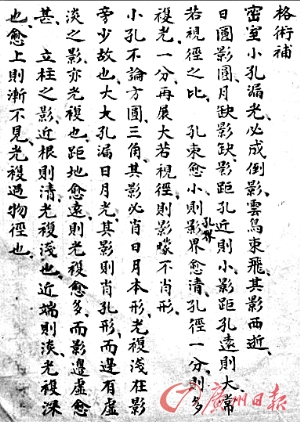 格術補
密室小孔漏光必成倒影、雲鳥東飛、其影西逝、
日圓影圓月缺影缺、影距孔近則小影距孔遠則大常
若視徑之比　孔束愈小則影界愈清、孔徑一分、則多
孔界
複光一分再展大若視徑、則影曚不肖形、
小孔不論方圓三角其影必肖日月本形、光複淺在影
旁少故也、大大孔漏日月光其影則肖孔形、而邊有虛
淡之影亦光複也、距地愈遠則光複愈多、而影邊虛愈
甚、立柱之影近根則清、光複淺也、近端則淡、光複深
也、愈上則漸不見、光複過物徑也、
廣州日報